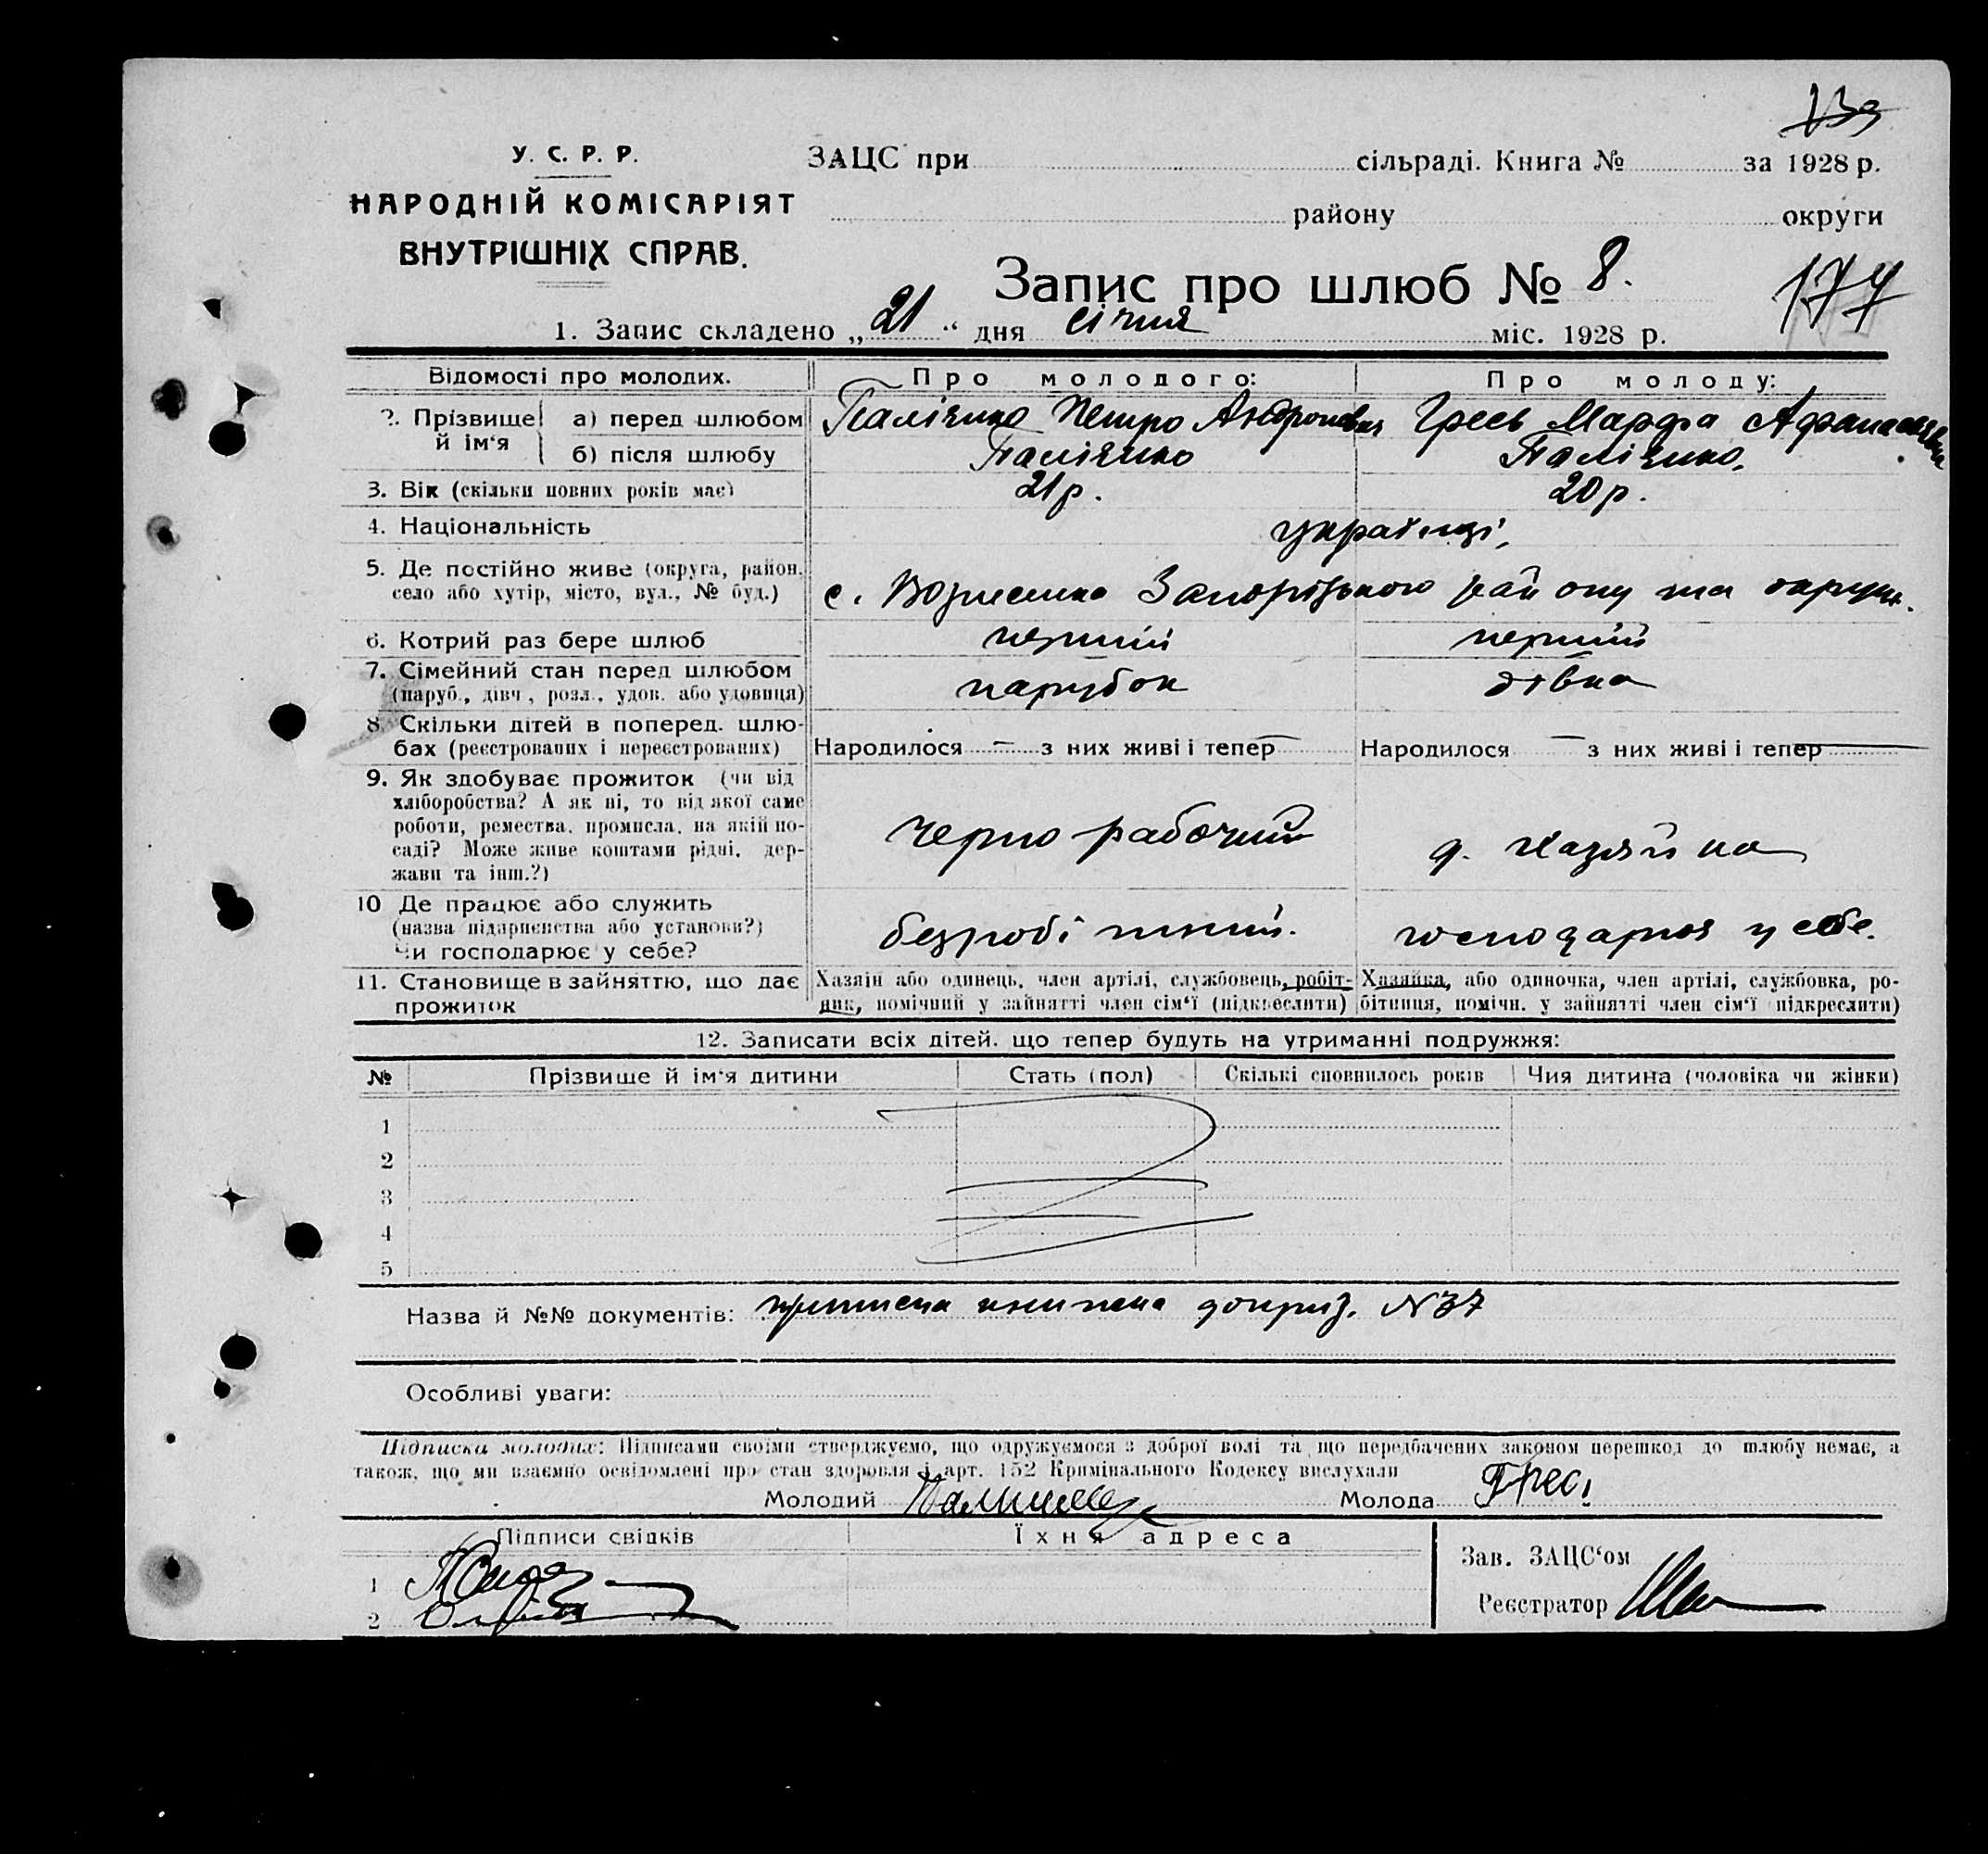 133
У. С. Р. Р.
НАРОДНІЙ КОМІСАРІЯТ
ВНУТРІШНІХ СПРАВ.
ЗАЦС при сільраді. Книга № за 1928 р.
району округи
Запис про шлюб № 8.
177
1. Запис складено „21“ дня січня міс. 1928 р.
Відомості про молодих. Про молодого: Про молоду:
2. Прізвище й ім‘я а) перед шлюбом Петро Гресь Марфа
б) після шлюбу
3. Вік (скільки повних років має) 21 р. 20 р.
4. Національність українці,
5. Де постійно живе (округа, район, село або хутір, місто, вул., № буд.) с. Вознесенка Запорізького району та округи.
6. Котрий раз бере шлюб перший перший
7. Сімейний стан перед шлюбом (паруб., дівч., розл., удов. або удовиця) парубок дівка
8. Скільки дітей в поперед. шлюбах (реєстрованих і нереєстрованих) Народилося — з них живі і тепер — Народилося — з них живі і тепер —
9. Як здобуває прожиток (чи від хліборобства? А як ні, то від якої саме роботи, ремества, промисла, на якій посаді? Може живе коштами рідні, держави та інш.?) чернорабочий д. хазяйка
10 Де працює або служить (назва підприємства або установи?) Чи господарює у себе? безробітний. господарює у себе.
11. Становище в зайняттю, що дає прожиток Хазяїн або одинець, член артілі, службовець, робітник, помічний у зайнятті член сім‘ї (підкреслити) Хазяйка, або одиночка, член артілі, службовка, робітниця, помічн. у зайнятті член сім‘ї підкреслити)
12. Записати всіх дітей, що тепер будуть на утриманні подружжя:
№ Прізвище й ім‘я дитини Стать (пол) Скількі сповнилось років Чия дитина (чоловіка чи жінки)
1
2
3
4
5
Назва й №№ документів: приписна книжка доприз. N 37
Особливі уваги:
Підписка молодих: Підписами своїми стверджуємо, що одружуємося з доброї волі та що передбачених законом перешкод до шлюбу немає, а
також, що ми взаємно освідомлені про стан здоровля і арт. 152 Кримінального Кодексу вислухали
Молодий Молода Грес
Підписи свідків Їхня адреса
Зав. ЗАЦС‘ом
1
Реєстратор
2